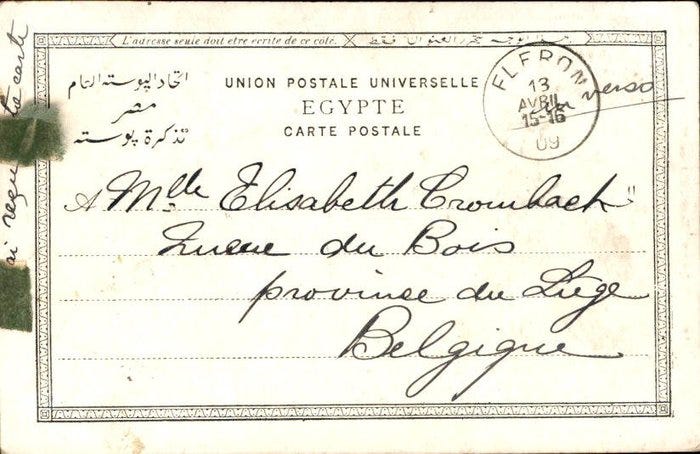 L'adresse seule doit etre ecrite de ce côté.
اتحاد البوسته العام
مصر
تذكرة بوسته
UNION POSTALE UNIVERSELLE
EGYPTE
CARTE POSTALE
FLERON
13
AVRIL
15-16
09
verso
A Mlle Elisabeth Crombach
Queue du Bois
province du Liège
Belgique
ai reçu ta carte